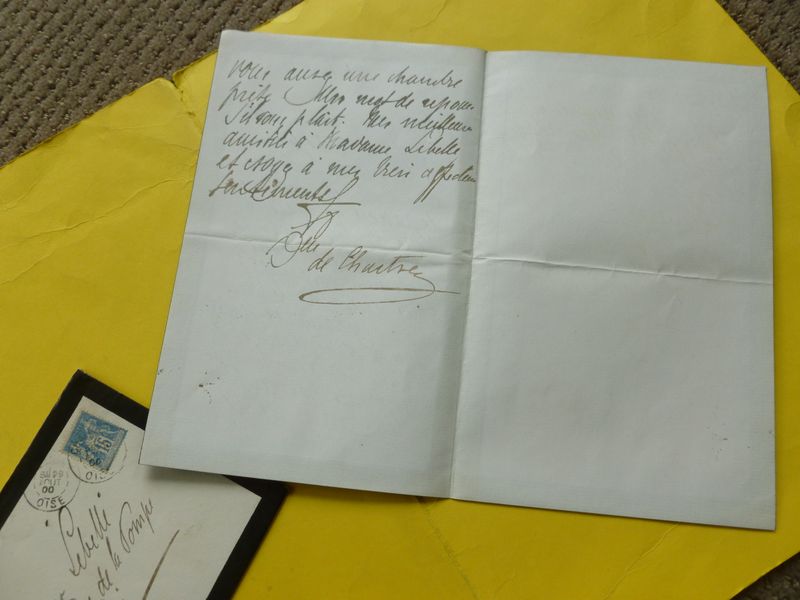 vous aurez une chambre
prête. Un mot de repon
S'il vous plait. Mes meilleur
amitiés à Madame Libelle
et croyez à mes bien affectueux
Sentiments
Duc
de Chartres
15
29
OUT
00
OISE
OISE
Libelle
de la Pompe